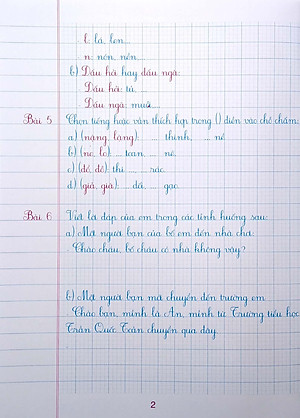 l: là, lon...
n: nón, nón...
b) Dấu hỏi hay dấu ngã:
Dấu hỏi: tả ...
Dấu ngã: muỗ...
Bài 5 Chọn tiếng hoặc vần thích hợp trong () điền vào chỗ chấm:
a) (nặng, lặng): ... thinh, ... nề
b) (no, lo): ... toan, ... nê
c) (đổ, đỗ): thi ..., ... rác
d) (giả, giã): ... đò, ... gạo
Bài 6 Viết lời đáp của em trong các tình huống sau:
a) Một người bạn của bố em đến nhà chơi:
- Chào cháu, bố cháu có nhà không vậy?
b) Một người bạn mới chuyển đến trường em
- Chào bạn, mình là An, mình từ Trường tiểu học
Trần Quốc Toản chuyển qua đây
2